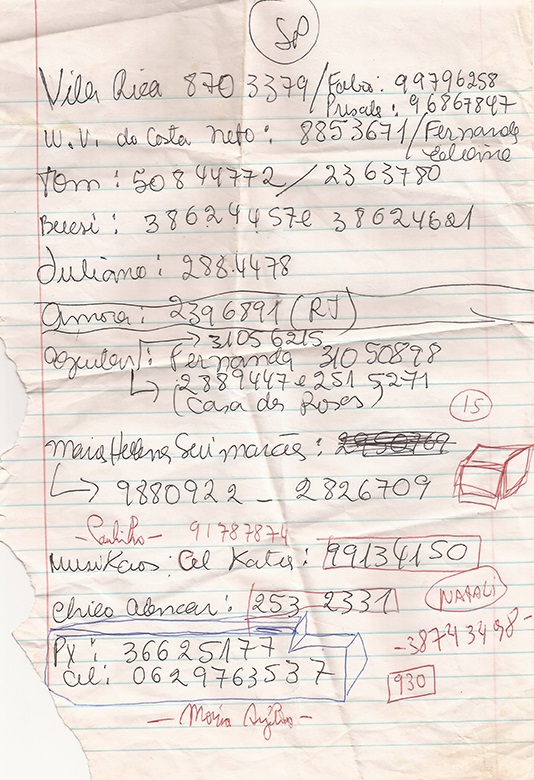 SP
Vila Rica 870 3379 / Fabio: 99796258
Priscila: 96867847
W.V. da Costa Neto: 8853671 / Fernanda
Tom: 50844772 / 2363780
38624457 e 38624621
Juliano: 288.4478
Amora: 2396891 (RJ)
31056215
Aguilar: Fernanda 31050898
2889447 e 251 5271
(Casa das Rosas)
15
Maria Helena Guimarães: 2950769
9880922 - 2826709
- Paulinho - 91787874
Musikaos: Cel Katia: 99134150
Chico Alencar: 253-2331
NATALI
-38743498-
PX: 36625177
Cel: 0629763537
930